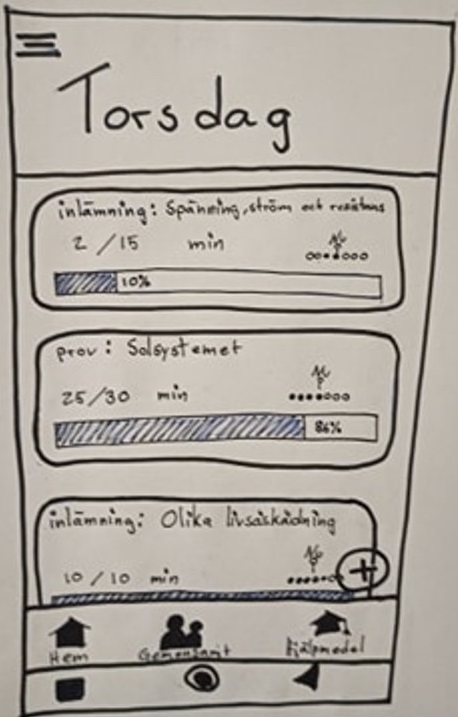 Torsdag
inlämning: Spänning, ström och resistans
2 /15 min
10%
prov: Solsystemet
25/30 min
86%
inlämning: Olika livsåskådning
10 / 10 min
+
Hem Gemensamt Hjälpmedel